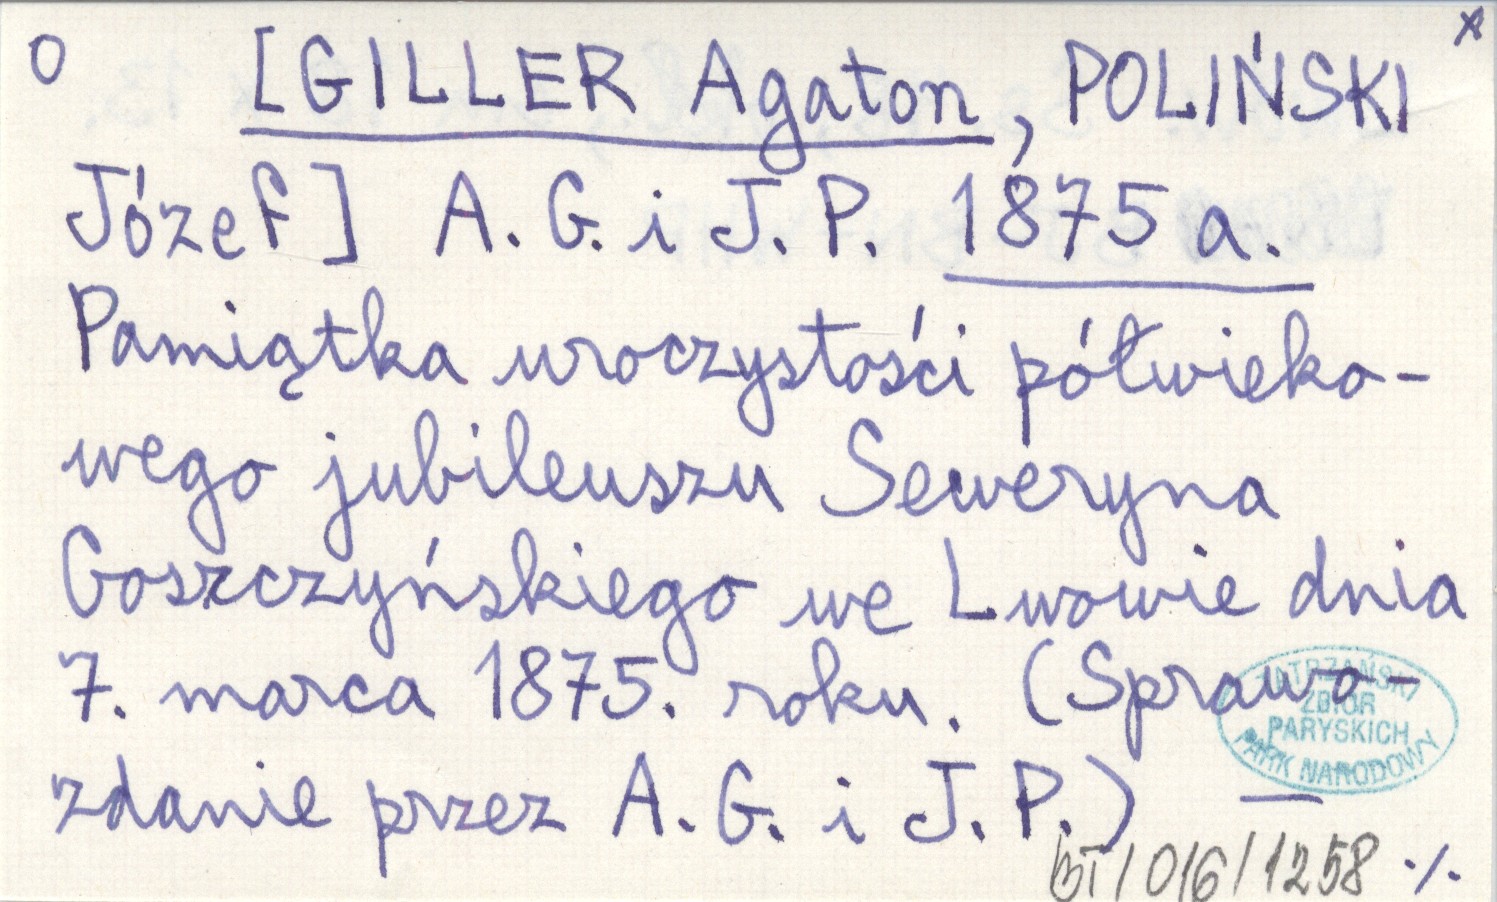 O [GILLER Agaton, POLIŃSKI x
Józef] A. G. i J. P. 1875 a.
Pamiątka uroczystości półwieko-
wego jubileuszu Seweryna
Goszczyńskiego we Lwowie dnia
7. marca 1875. roku. (Sprawo-
zdanie przez A. G. i J. P.) —
TATRZAŃSKI
ZBIÓR
PARYSKICH
PARK NARODOWY
BT/O/6/1258 ·/.